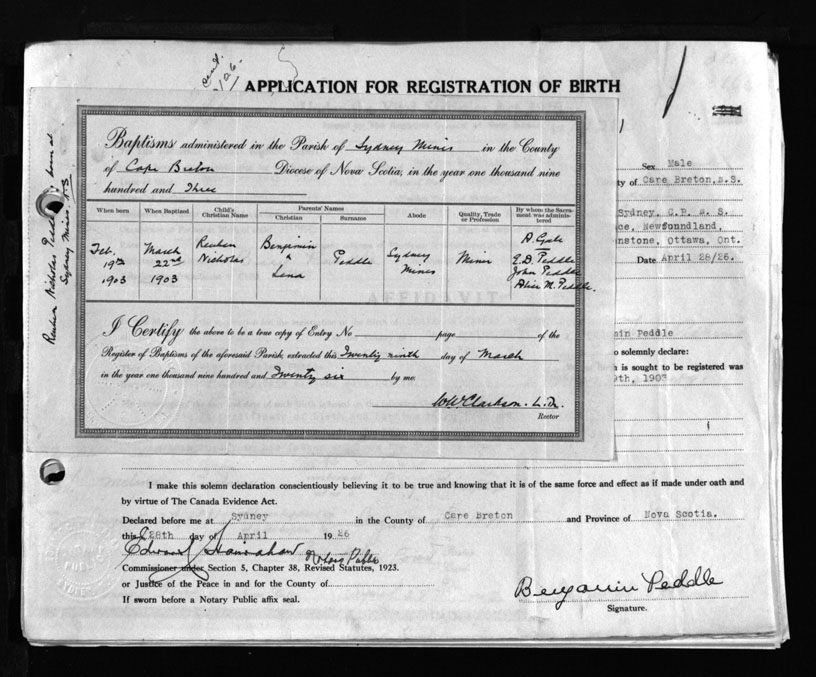 APPLICATION FOR REGISTRATION OF BIRTH
Reuben Nicholas Peddle born at
Sydney Mines N S
Baptisms administered in the Parish of Sydney Mines in the County
of Cape Breton Diocese of Nova Scotia, in the year one thousand nine
hundred and Three
When born
When Baptized
Child's Christian Name
Parents' Names
Christian
Surname
Abode
Quality, Trade or Profession
By whom the Sacrament was administered
Feb. 19th 1903
March 22nd 1903
Reuben Nicholas
Benjimin & Lena
Peddle
Sydney Mines
Miner
E.D. Peddle
John Peddle
Alice M. Peddle.
I Certify the above to be a true copy of Entry No page of the
Register of Baptisms of the aforesaid Parish, extracted this Twenty ninth day of March
in the year one thousand nine hundred and Twenty six by me.
W.W. Clarkson. L.Th.
Rector
Sex Male
ty of Care Breton, N.S.
Sydney, C.B. N. S.
ce, Newfoundland,
nstone, Ottawa, Ont.
Date April 28/26.
AFFIDAVIT
min Peddle
o solemnly declare:
h is sought to be registered was
9th, 1903
I make this solemn declaration conscientiously believing it to be true and knowing that it is of the same force and effect as if made under oath and
by virtue of The Canada Evidence Act.
Declared before me at Sydney in the County of Care Breton and Province of Nova Scotia.
this 28th day of April 19 26
Edward Notary Public
Commissioner under Section 5, Chapter 38, Revised Statutes, 1923.
or Justice of the Peace in and for the County of
If sworn before a Notary Public affix seal.
Benjamin Peddle
Signature.